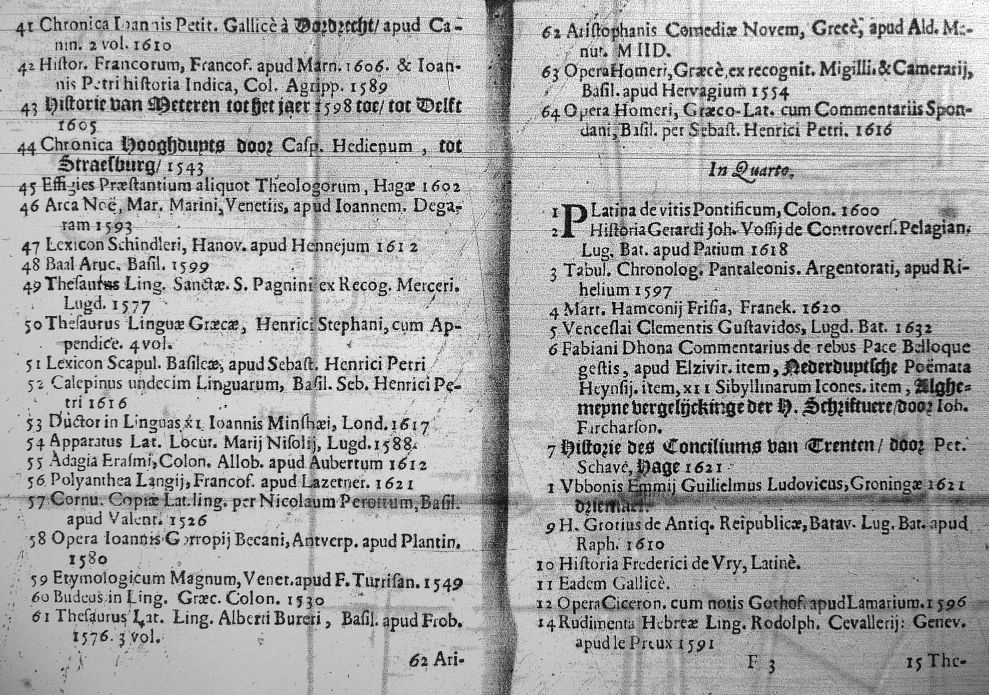 41 Chronica Ioannis Petit. Gallicè à Dordrecht/ apud Ca-
nin. 2 vol. 1610
42 Histor. Francorum, Francof. apud Marn. 1606. & Ioan-
nis Petri historia Indica, Col. Agripp. 1589
43 Historie van Meteren tot het jaer 1598 toe/ tot Delft
1605
44 Chronica Hooghdupts door Casp. Hedienum, tot
Straesburg/ 1543
45 Effigies Præstantium aliquot Theologorum, Hagæ 1602
46 Arca Noë, Mar. Marini, Venetiis, apud Ioannem. Dega-
ram 1593
47 Lexicon Schindleri, Hanov. apud Hennejum 1612
48 Baal Aruc. Basil. 1599
49 Thesautus Ling. Sanctæ. S. Pagnini ex Recog. Merceri.
Lugd. 1577
50 Thesaurus Linguæ Græcæ, Henrici Stephani, cum Ap-
pendice. 4 vol.
51 Lexicon Scapul. Basileæ, apud Sebast. Henrici Petri
52 Calepinus undecim Linguarum, Basil. Seb. Henrici Pe-
tri 1616
53 Ductor in Linguas XI. Ioannis Minshæi, Lond. 1617
54 Apparatus Lat. Locut. Marij Nisolij, Lugd. 1588.
55 Adagia Erasmi, Colon. Allob. apud Aubertum 1612
56 Polyanthea Langij, Francof. apud Lazetner. 1621
57 Cornu. Copiæ Lat. ling. per Nicolaum Perottum, Basil.
apud Valent. 1526
58 Opera Ioannis Gorropij Becani, Antverp. apud Plantin.
1580
59 Etymologicum Magnum, Venet. apud F. Turrisan. 1549
60 Budeus in Ling. Græc. Colon. 1530
61 Thesaurus Lat. Ling. Alberti Bureti, Basil. apud Frob.
1576. 3 vol.
62 Ari-
62 Aristophanis Comediæ Novem, Grecè, apud Ald. Ma-
nut. MIID.
63 Opera Homeri, Græcè, ex recognit. Migilli. & Camerarij,
Basil. apud Hervagium 1554
64 Opera Homeri, Græco-Lat. cum Commentariis Spon-
dani, Basil. per Sebast. Henrici Petri. 1616
In Quarto.
1 PLatina de vitis Pontificum, Colon. 1600
2 Historia Gerardi Joh. Vossij de Controvers. Pelagian.
Lug. Bat. apud Patium 1618
3 Tabul. Chronolog. Pantaleonis. Argentorati, apud Ri-
helium 1597
4 Mart. Hamconij Frisia, Franek. 1620
5 Venceslai Clementis Gustavidos, Lugd. Bat. 1632
6 Fabiani Dhona Commentarius de rebus Pace Belloque
gestis, apud Elzivir. item, Nederduptsche Poëmata
Heynsij. item, XII Sibyllinarum Icones. item, Alghe-
meyne vergelijckinge der H. Schriftuere/ door Ioh.
Farcharson.
7 Historie des Conciliums van Trenten/ door Pet.
Schave, Hage 1621
1 Vbbonis Emmij Guilielmus Ludovicus, Groningæ 1621
driemael.
9 H. Grotius de Antiq. Reipublicæ, Batav. Lug. Bat. apud
Raph. 1610
10 Historia Frederici de Vry, Latinè.
11 Eadem Gallicè.
12 Opera Ciceron. cum notis Gothof. apud Lamarium. 1596
14 Rudimenta Hebreæ Ling. Rodolph. Cevallerij: Genev.
apud le Preux 1591
F 3
15 The-